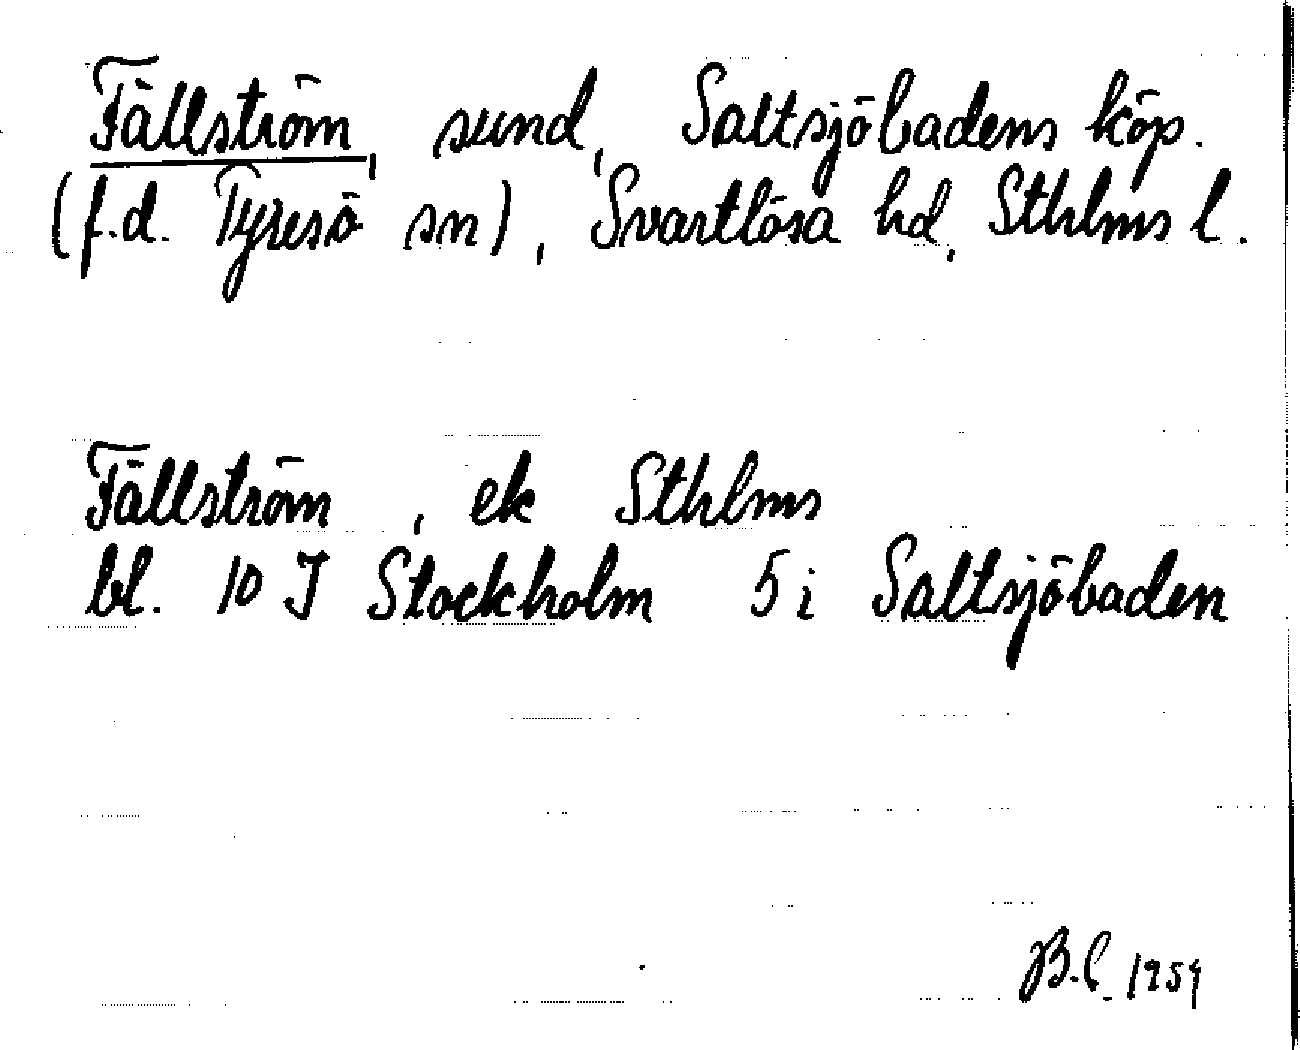 Fällström, sund, Saltsjöbadens köp.
(f.d. Tyresö sn), Svartlösa hd, Sthlms l.
Fällström, ek Sthlms
bl. 10 I Stockholm 5 i Saltsjöbaden
B.C. 1959